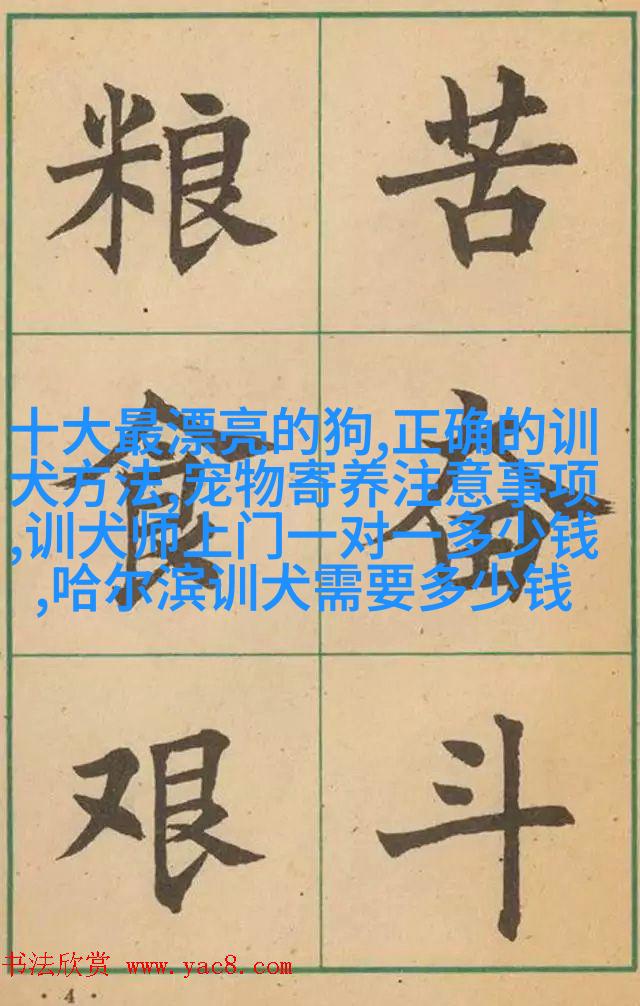 粮 苦
食 奋
艰 斗
十大最漂亮的狗,正确的训
犬方法,宠物寄养注意事项
,训犬师上门一对一多少钱
,哈尔滨训犬需要多少钱
书法欣赏 www.yac8.com
· 4 ·